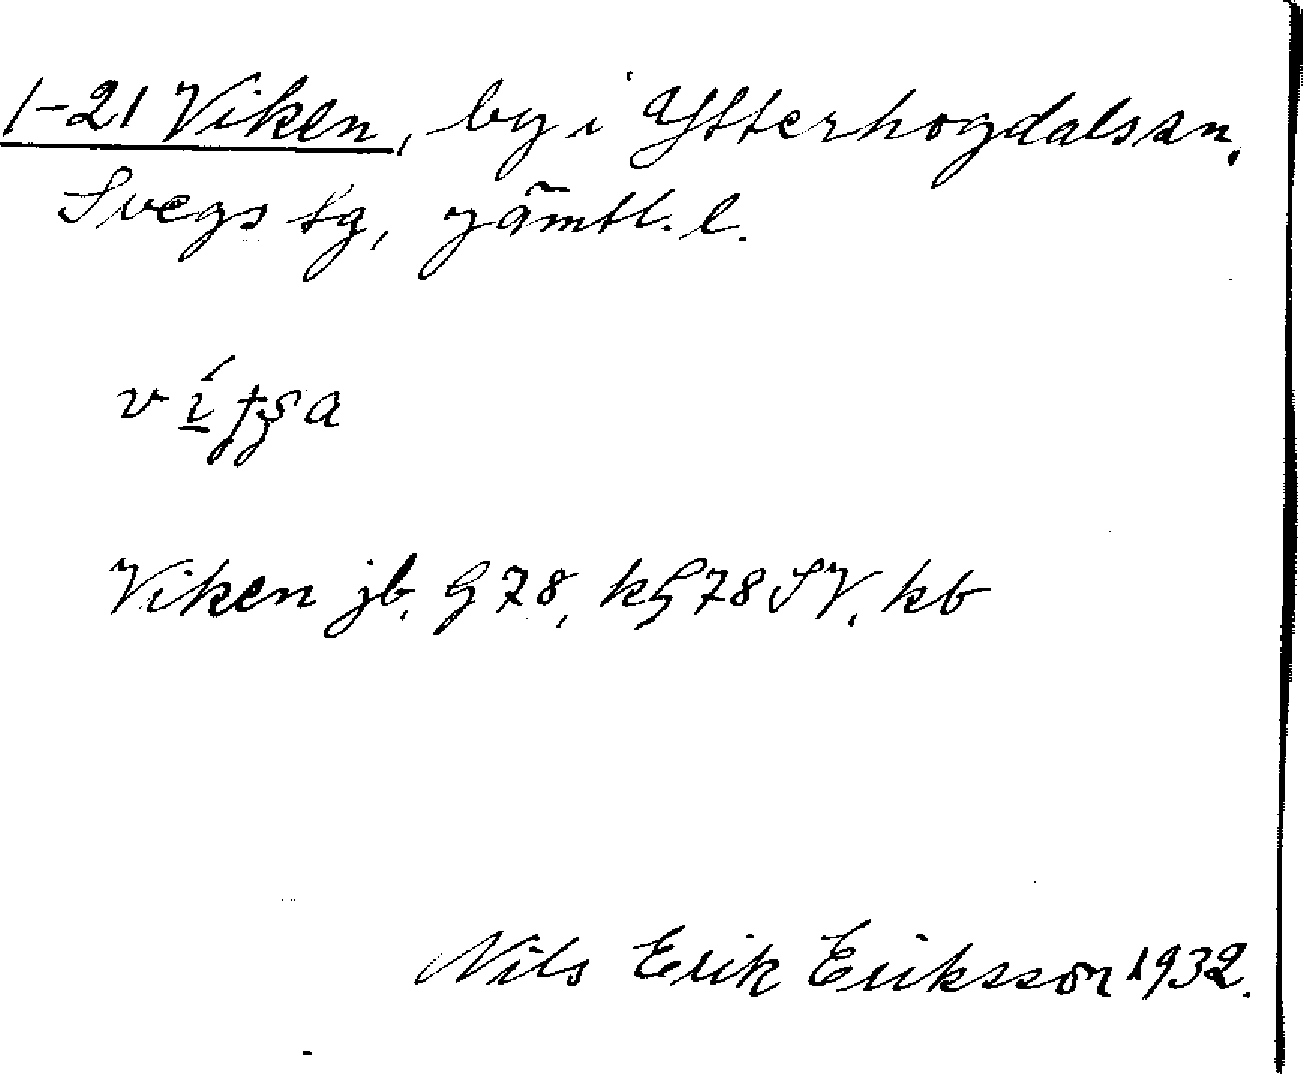 1-21 Viken, by i Ytterhogdals sn,
Svegs tg, Jämtl. l.
Viken jb, G 78, kG 78 SV, kb
Nils Erik Eriksson 1932.